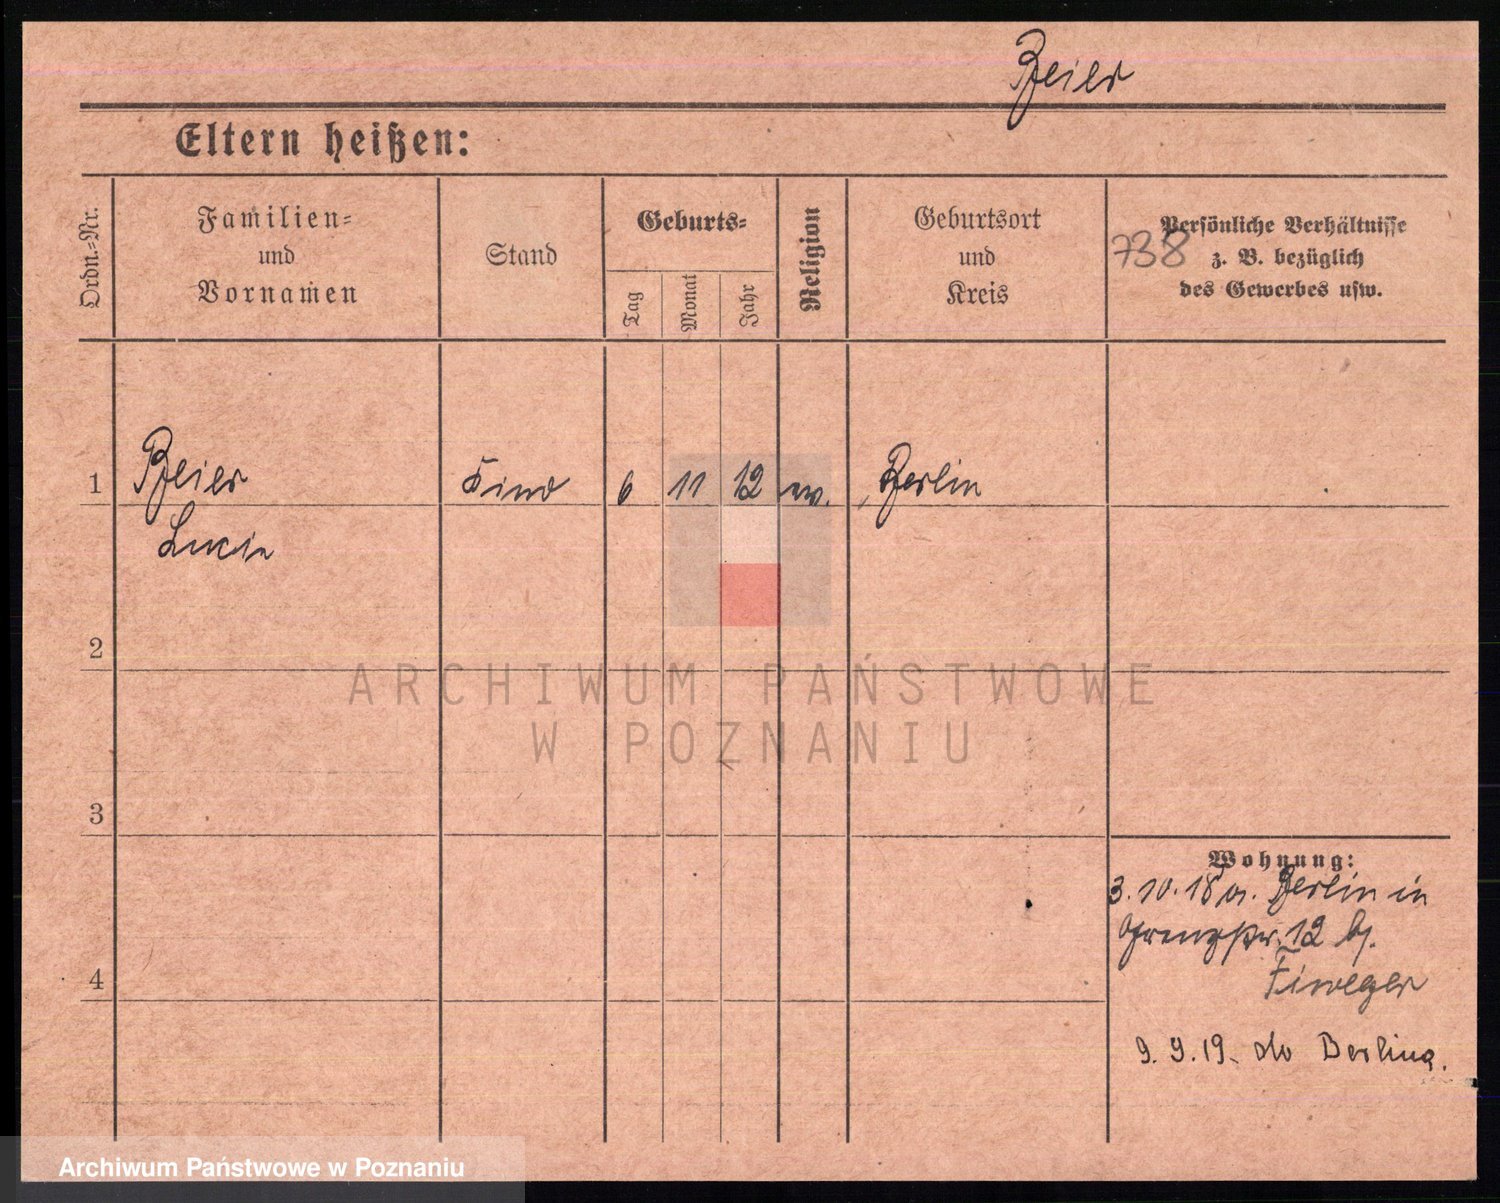 Beier
Eltern heißen:
Ordn.-Nr.
Familien-
und
Vornamen
Stand
Geburts-
Tag
Monat
Jahr
Religion
Geburtsort
und
Kreis
Persönliche Verhältnisse
z. B. bezüglich
des Gewerbes usw.
738
1
Beier
Kind
6
11
12
ev.
Berlin
Lucie
2
ARCHIWUM PAŃSTWOWE
W POZNANIU
3
4
Wohnung:
3. 10. 18 a. Berlin in
12 b.
9. 9. 19. do Berlina.
Archiwum Państwowe w Poznaniu